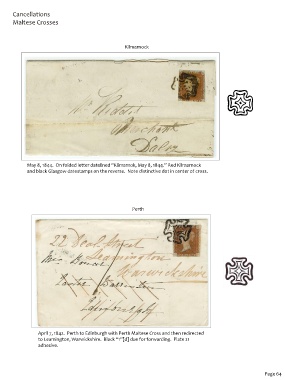 Cancellations
Maltese Crosses
Kilmarnock
Merchant
Dalry
May 8, 1844. On folded letter datelined "Kilmarnock, May 8, 1844." Red Kilmarnock
and black Glasgow datestamps on the reverse. Note distinctive dot in center of cross.
Perth
22
Street
Leamington
Warwickshire
Edinburgh
April 7, 1842. Perth to Edinburgh with Perth Maltese Cross and then redirected
to Leamington, Warwickshire. Black "1"[d] due for forwarding. Plate 21
adhesive.
Page 64